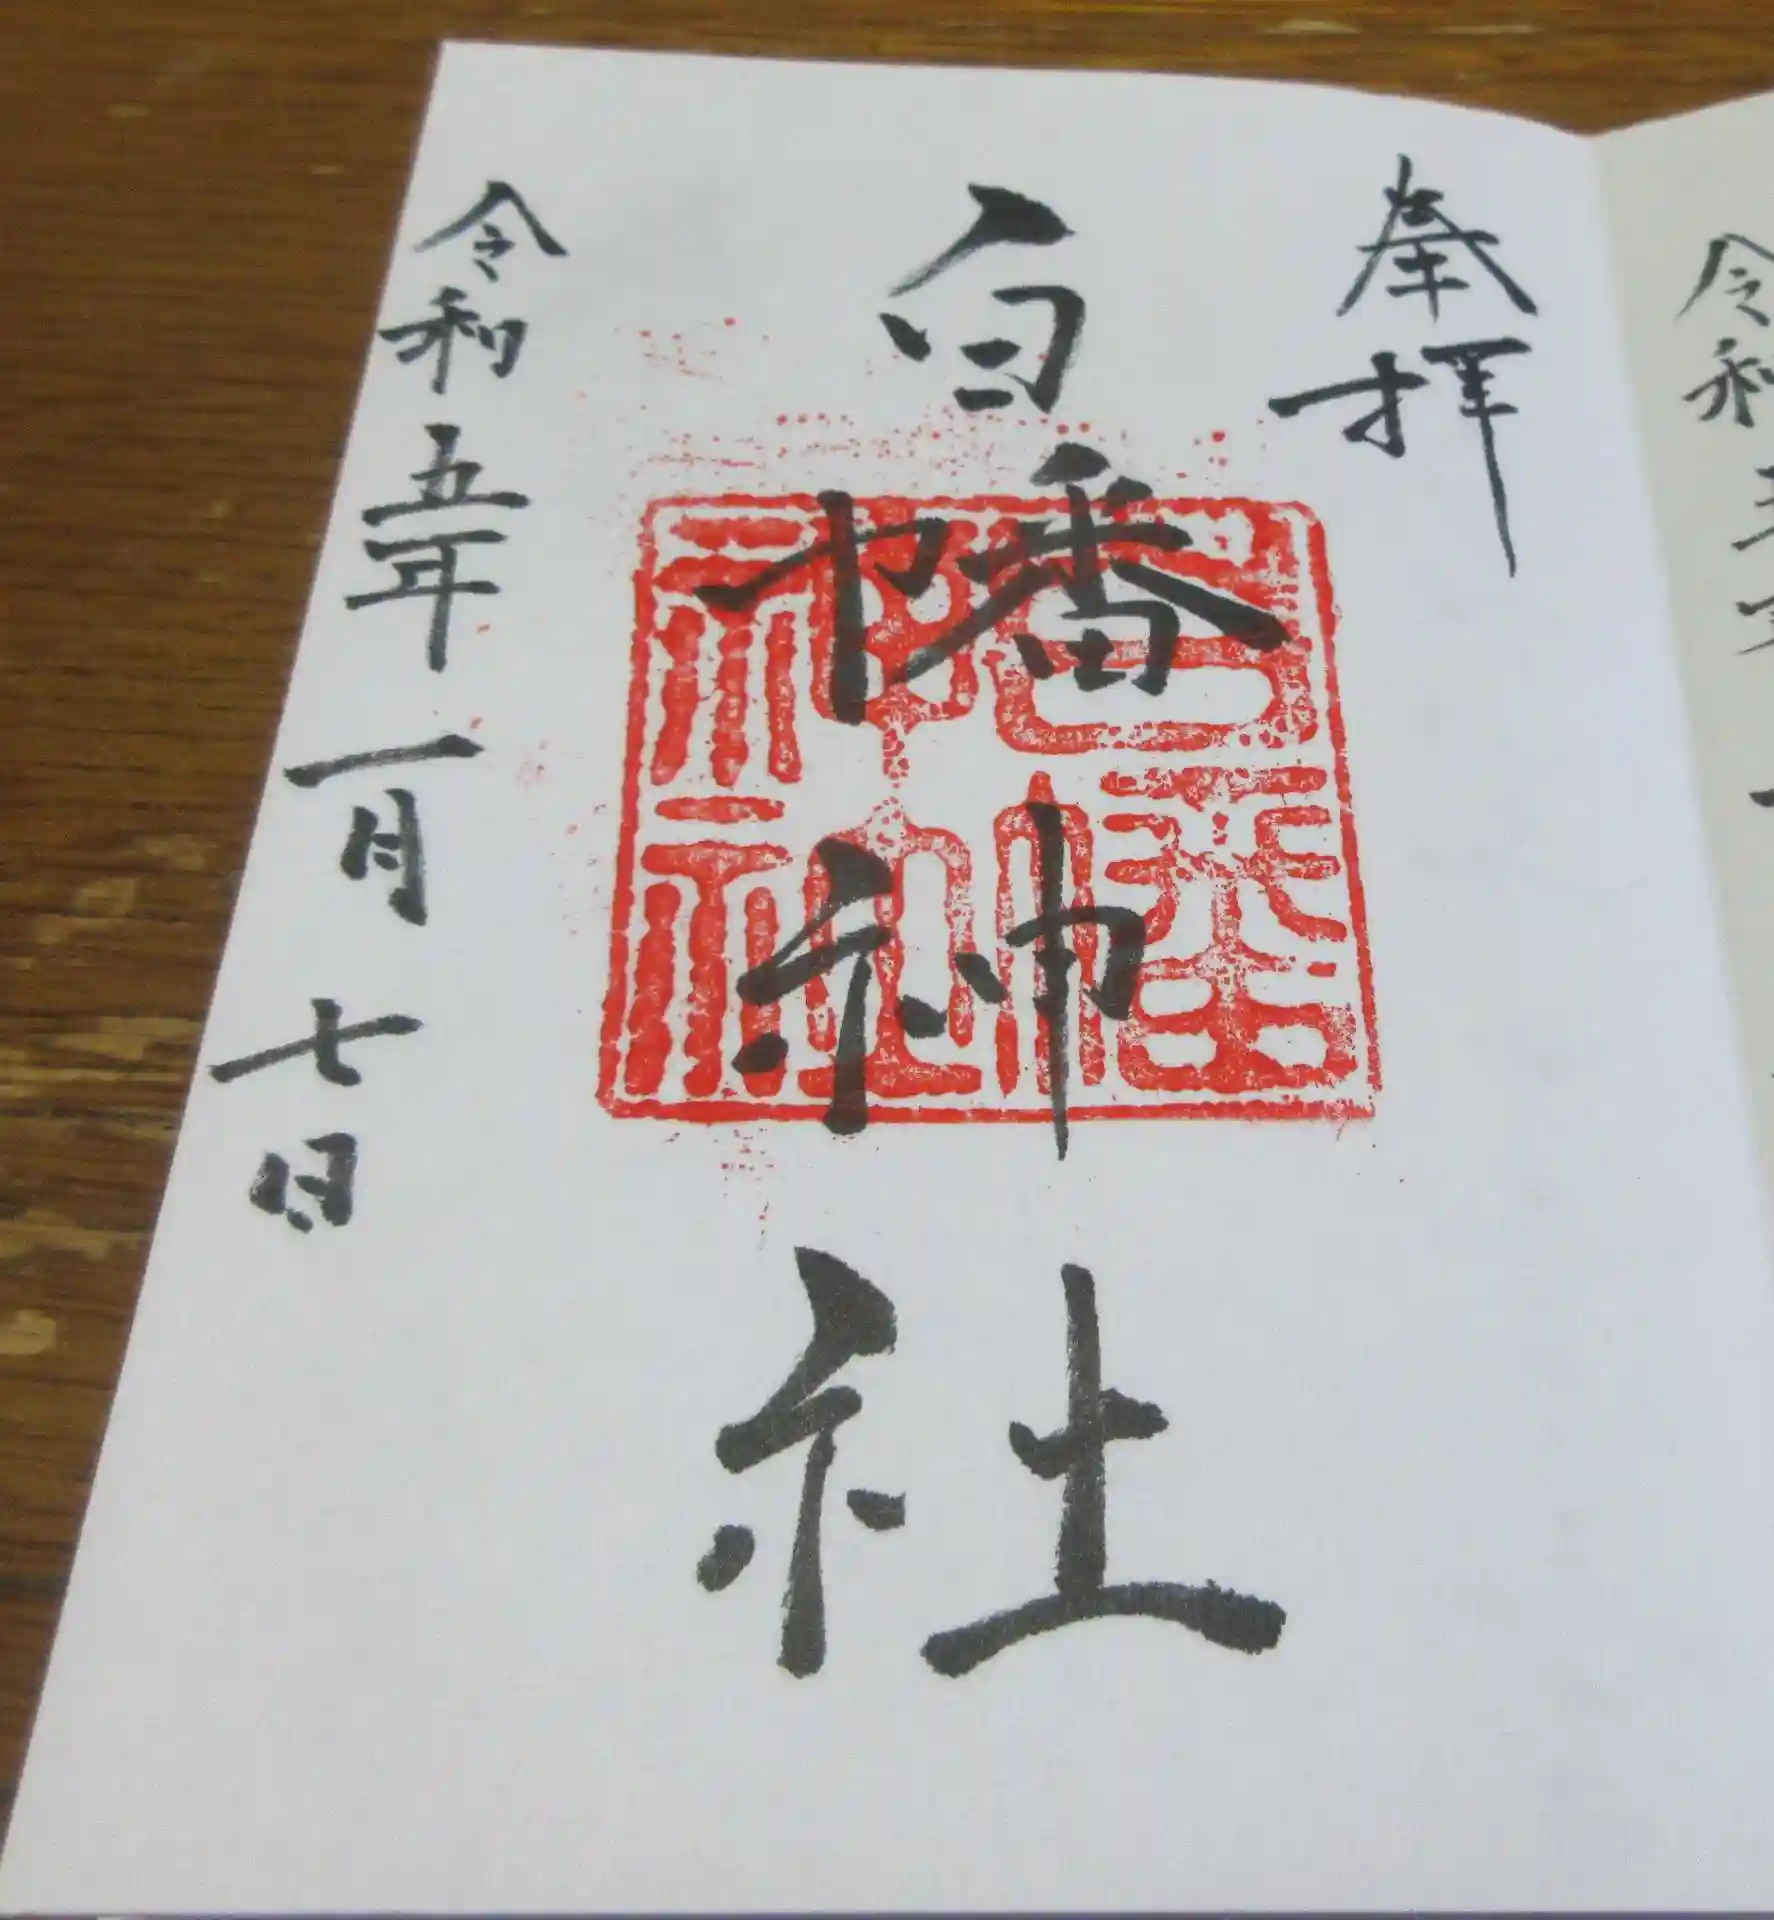 奉拝
白幡神社
白幡神社
令和五年一月七日
令和